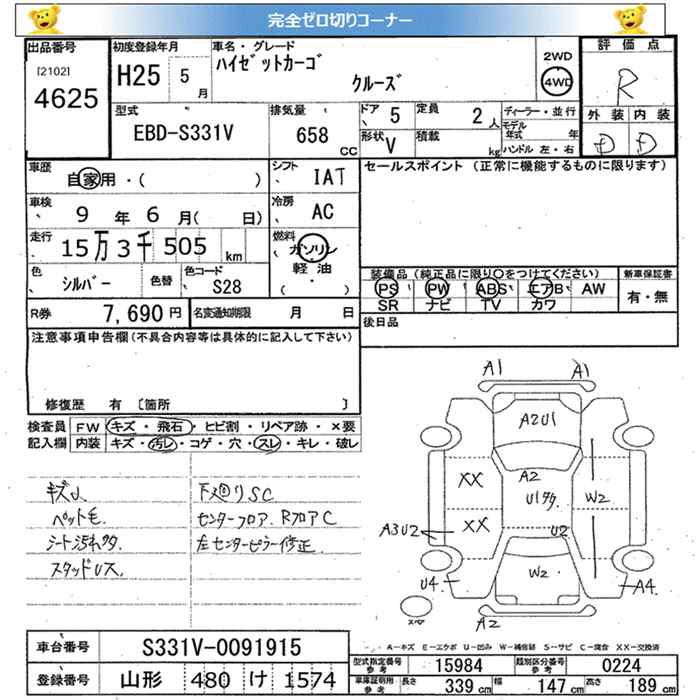 完全ゼロ切りコーナー
出品番号 [2102] 4625
初度登録年月 H25 5月
車名・グレード ハイゼットカーゴ クルーズ
2WD 4WD
評価点 R
外装 内装 D D
型式 EBD-S331V
排気量 658 CC
ドア 5
形状 V
定員 2人
積載 kg
ディーラー・並行
モデル年式 年
ハンドル 左・右
車歴 自家用・( )
シフト IAT
セールスポイント (正常に機能するものに限ります)
車検 9年 6月( 日)
冷房 AC
走行 15万3千505km
燃料 ガソリン 軽油 ( ・ )
色 シルバー 色替
色コード S28
装備品(純正品に限り○をつけてください)
PS PW ABS エアB AW
SR ナビ TV カワ
新車保証書 有・無
R券 7,690円 名変通知期限 月 日
後日品
注意事項申告欄(不具合内容等は具体的に記入して下さい)
修復歴 有 〔箇所 〕
検査員記入欄 FW キズ・飛石・ヒビ割・リペア跡・×要
内装 キズ・汚レ・コゲ・穴・スレ・キレ・破レ
キズU.
ペット毛.
シート汚れ多.
スタッドUス.
下廻りSC
センターフロア. RフロアC
左センターピラー修正.
A1 A1
A2U1
A2
XX
U1多
W2
XX
A3U2
U2
U4
W2
A4
スペア
A2
A-キズ E-エクボ U-凹み W-補修跡 S-サビ C-腐食 XX-交換済
車台番号 S331V-0091915
登録番号 山形 480 け 1574
型式指定番号 参考 15984 類別区分番号 参考 0224
車庫証明用 参考 長さ 339cm 幅 147cm 高さ 189cm